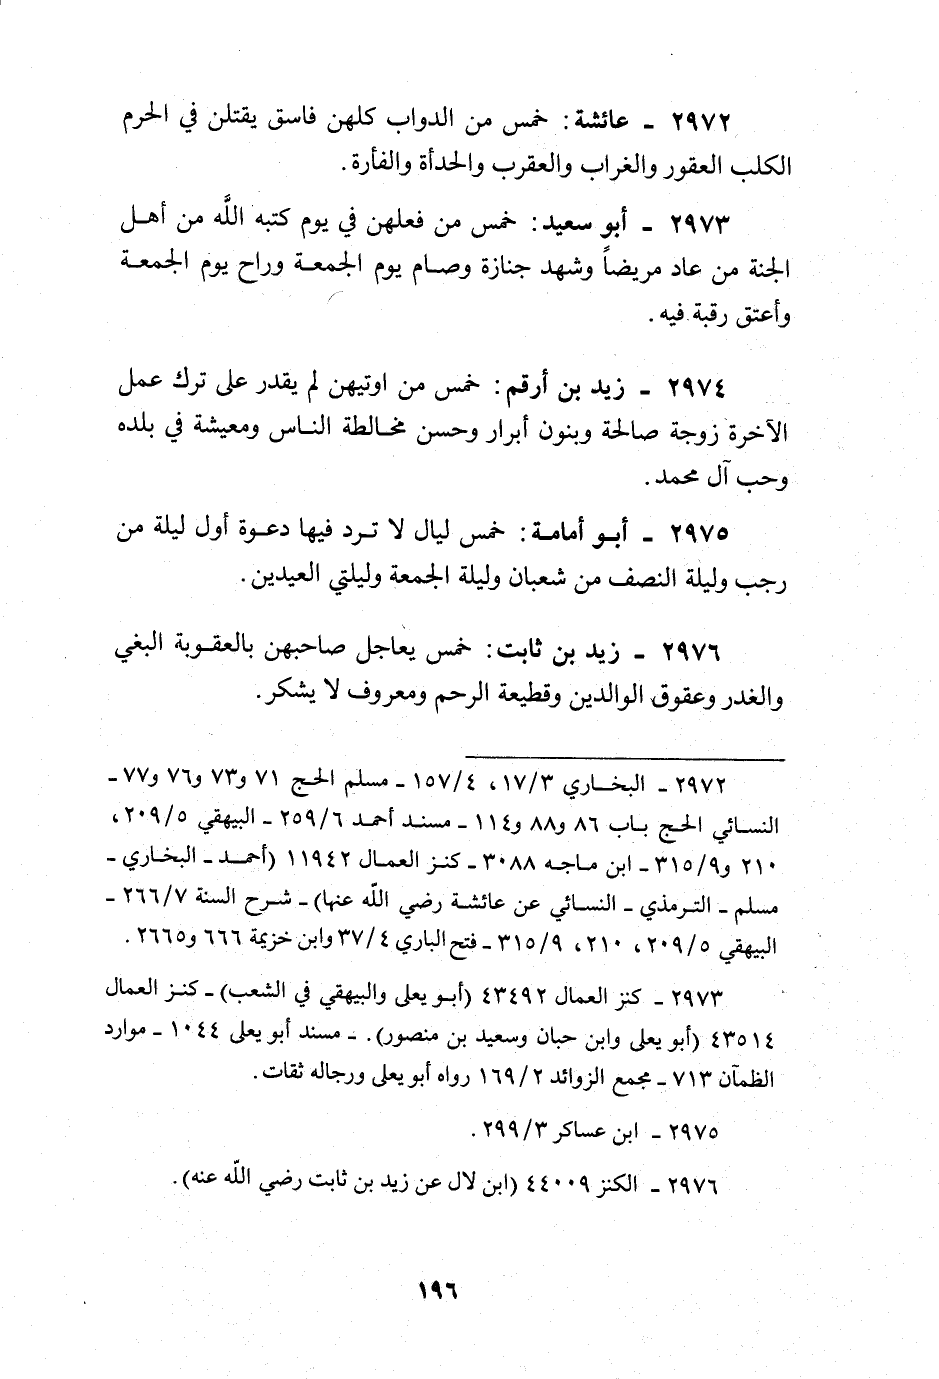 ٢٩٧٢ - عائشة: خمس من الدواب كلهن فاسق يقتلن في الحرم
الكلب العقور والغراب والعقرب والحدأة والفأرة.
٢٩٧٣ - أبو سعيد: خمس من فعلهن في يوم كتبه اللَّه من أهل
الجنة من عاد مريضاً وشهد جنازة وصام يوم الجمعة وراح يوم الجمعة
وأعتق رقبة فيه.
٢٩٧٤ - زيد بن أرقم: خمس من اوتيهن لم يقدر على ترك عمل
الآخرة زوجة صالحة وبنون أبرار وحسن مخالطة الناس ومعيشة في بلده
وحب آل محمد.
٢٩٧٥ - أبو أمامة: خمس ليال لا ترد فيها دعوة أول ليلة من
رجب وليلة النصف من شعبان وليلة الجمعة وليلتي العيدين.
٢٩٧٦ - زيد بن ثابت: خمس يعاجل صاحبهن بالعقوبة البغي
والغدر وعقوق الوالدين وقطيعة الرحم ومعروف لا يشكر.
٢٩٧٢ - البخاري ١٧/٣، ١٥٧/٤ - مسلم الحج ٧١ و٧٣ و٧٦ و٧٧ -
النسائي الحج باب ٨٦ و٨٨ و١١٤ - مسند أحمد ٢٥٩/٦ - البيهقي ٢٠٩/٥،
٢١٠ و٣١٥/٩ - ابن ماجه ٣٠٨٨ - كنز العمال ١١٩٤٢ (أحمد - البخاري -
مسلم - الترمذي - النسائي عن عائشة رضي اللّه عنها) - شرح السنة ٢٦٦/٧ -
البيهقي ٢٠٩/٥، ٢١٠، ٣١٥/٩ - فتح الباري ٣٧/٤ وابن خزيمة ٦٦٦ و٢٦٦٥.
٢٩٧٣ - كنز العمال ٤٣٤٩٢ (أبو يعلى والبيهقي في الشعب) - كنز العمال
٤٣٥١٤ (أبو يعلى وابن حبان وسعيد بن منصور). - مسند أبو يعلى ١٠٤٤ - موارد
الظمآن ٧١٣ - مجمع الزوائد ١٦٩/٢ رواه أبو يعلى ورجاله ثقات.
٢٩٧٥ - ابن عساكر ٢٩٩/٣.
٢٩٧٦ - الكنز ٤٤٠٠٩ (ابن لال عن زيد بن ثابت رضي اللّه عنه).
١٩٦